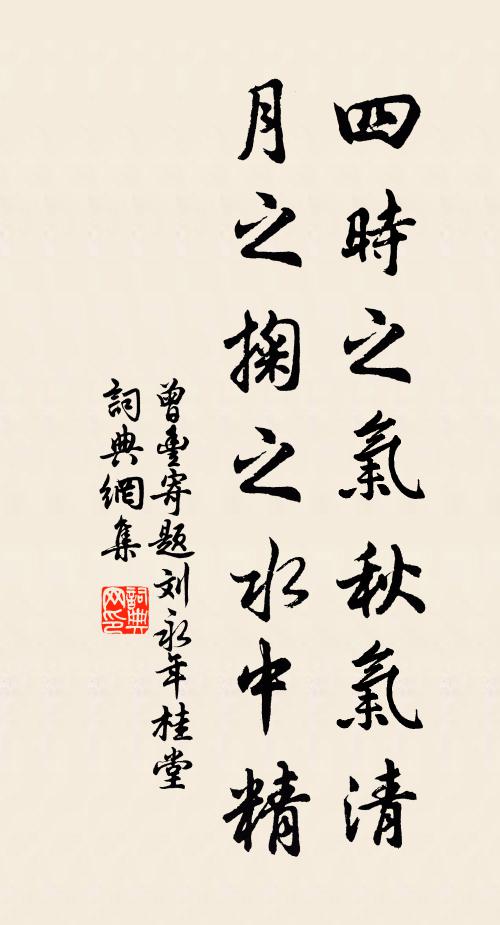 四時之氣秋氣清
月之掬之水中精
曾豐寄題刘永年桂堂
詞典網集
詞典网印